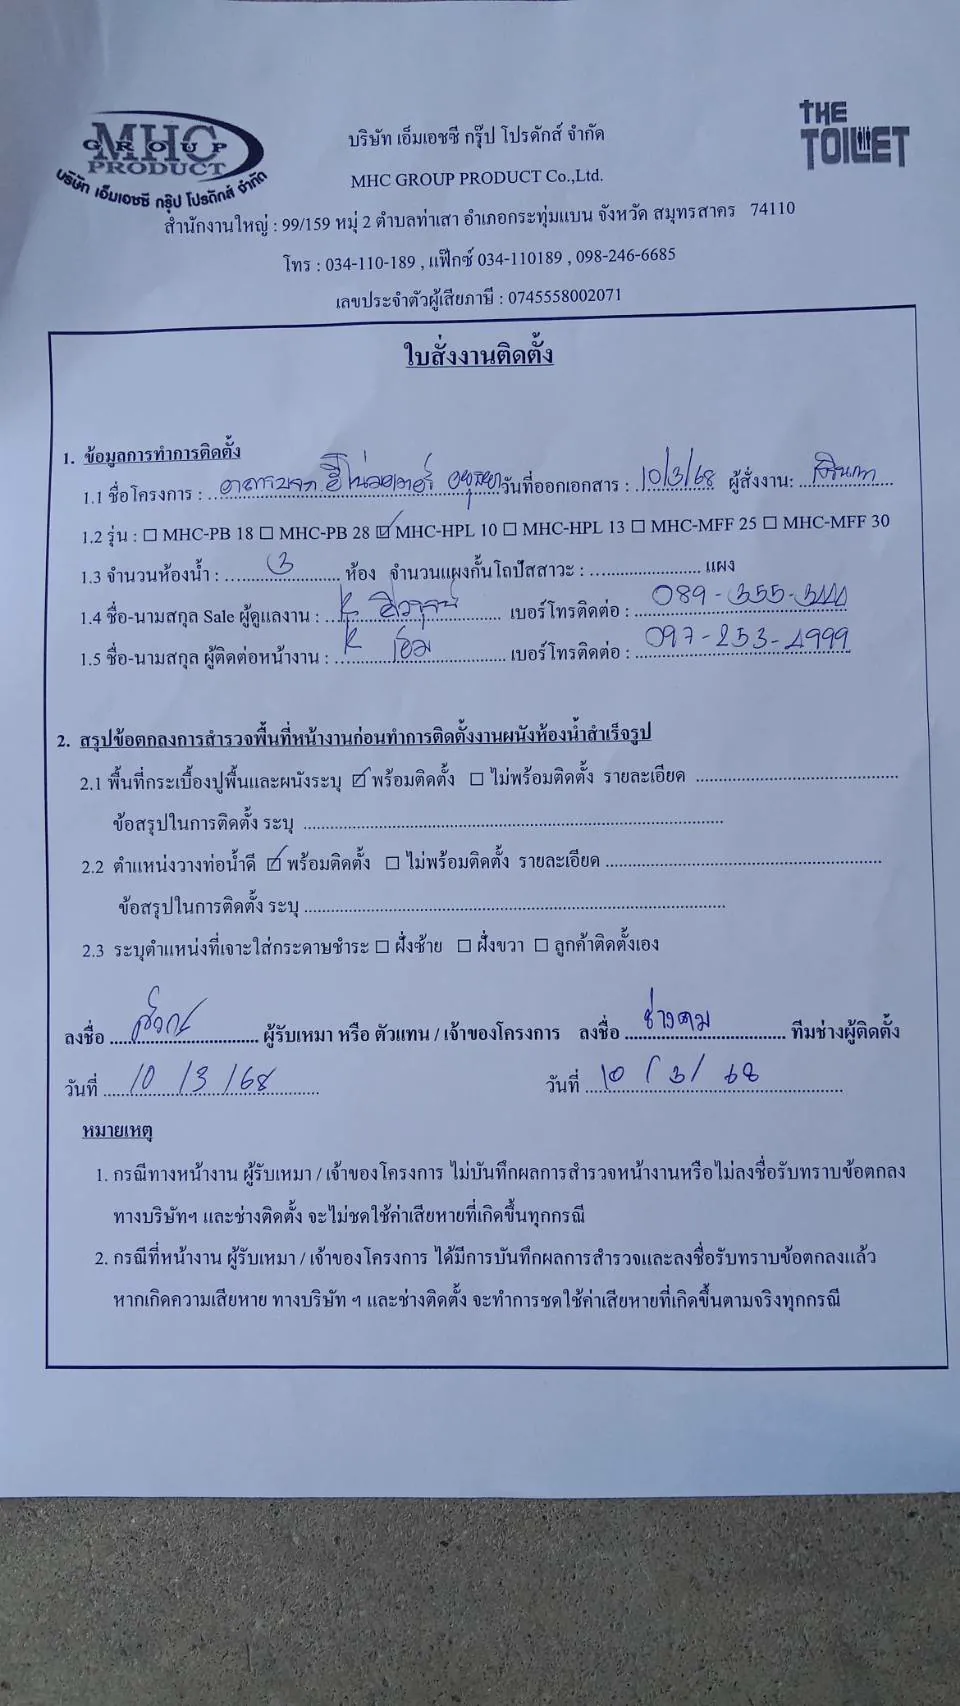 MHC
GROUP
PRODUCT
บริษัท เอ็มเอชซี กรุ๊ป โปรดักส์ จำกัด
THE
TOILET
บริษัท เอ็มเอชซี กรุ๊ป โปรดักส์ จำกัด
MHC GROUP PRODUCT Co.,Ltd.
สำนักงานใหญ่ : 99/159 หมู่ 2 ตำบลท่าเสา อำเภอกระทุ่มแบน จังหวัด สมุทรสาคร 74110
โทร : 034-110-189 , แฟ๊กซ์ 034-110189 , 098-246-6685
เลขประจำตัวผู้เสียภาษี : 0745558002071
ใบสั่งงานติดตั้ง
1. ข้อมูลการทำการติดตั้ง
1.1 ชื่อโครงการ : วันที่ออกเอกสาร : 10/3/68 ผู้สั่งงาน:
1.2 รุ่น : ☐ MHC-PB 18 ☐ MHC-PB 28 ☑ MHC-HPL 10 ☐ MHC-HPL 13 ☐ MHC-MFF 25 ☐ MHC-MFF 30
1.3 จำนวนห้องน้ำ : 3 ห้อง จำนวนแผงกั้นโถปัสสาวะ : แผง
1.4 ชื่อ-นามสกุล Sale ผู้ดูแลงาน : K เบอร์โทรติดต่อ :
1.5 ชื่อ-นามสกุล ผู้ติดต่อหน้างาน : K เบอร์โทรติดต่อ : 097-253-4999
2. สรุปข้อตกลงการสำรวจพื้นที่หน้างานก่อนทำการติดตั้งงานผนังห้องน้ำสำเร็จรูป
2.1 พื้นที่กระเบื้องปูพื้นและผนังระบุ ☑ พร้อมติดตั้ง ☐ ไม่พร้อมติดตั้ง รายละเอียด
ข้อสรุปในการติดตั้ง ระบุ
2.2 ตำแหน่งวางท่อน้ำดี ☑ พร้อมติดตั้ง ☐ ไม่พร้อมติดตั้ง รายละเอียด
ข้อสรุปในการติดตั้ง ระบุ
2.3 ระบุตำแหน่งที่เจาะใส่กระดาษชำระ ☐ ฝั่งซ้าย ☐ ฝั่งขวา ☐ ลูกค้าติดตั้งเอง
ลงชื่อ ผู้รับเหมา หรือ ตัวแทน / เจ้าของโครงการ ลงชื่อ ช่างคม ทีมช่างผู้ติดตั้ง
วันที่ 10 / 3 / 68 วันที่ 10 / 3 / 68
หมายเหตุ
1. กรณีทางหน้างาน ผู้รับเหมา / เจ้าของโครงการ ไม่บันทึกผลการสำรวจหน้างานหรือไม่ลงชื่อรับทราบข้อตกลง
ทางบริษัทฯ และช่างติดตั้ง จะไม่ชดใช้ค่าเสียหายที่เกิดขึ้นทุกกรณี
2. กรณีที่หน้างาน ผู้รับเหมา / เจ้าของโครงการ ได้มีการบันทึกผลการสำรวจและลงชื่อรับทราบข้อตกลงแล้ว
หากเกิดความเสียหาย ทางบริษัท ฯ และช่างติดตั้ง จะทำการชดใช้ค่าเสียหายที่เกิดขึ้นตามจริงทุกกรณี